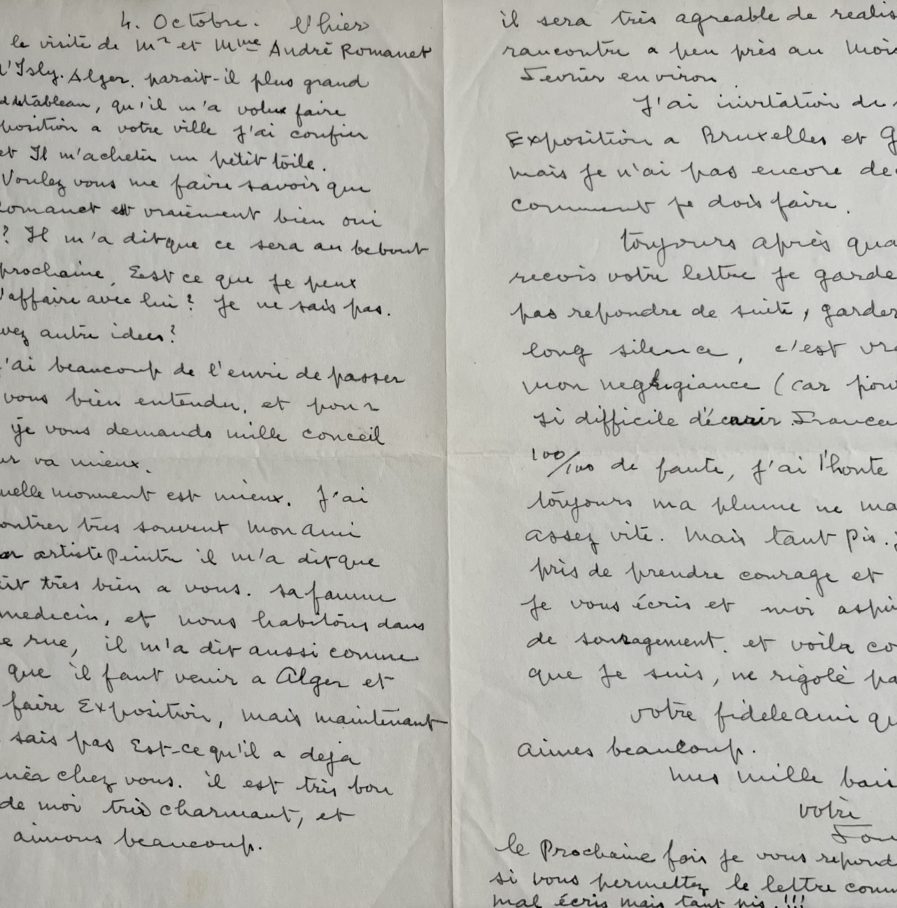 4. Octobre. L'hier
le visite de Mr et Mme André Romanet
d'Isly. Alger. parait-il plus grand
tableau, qu'il m'a volue faire
position a votre ville j'ai confier
et Il m'acheter un petit toile.
Voulez vous me faire savoir que
Romanet est vraiement bien oui
? Il m'a dit que ce sera au bebout
prochaine. Est ce que je peux
l'affaire avec lui? Je ne sais pas.
avez autre idees?
j'ai beaucoup de l'envie de passer
vous bien entendu, et pour
je vous demande mille conceil
va mieux.
quelle monment est mieux. J'ai
ontrer très souvent mon ami
artiste Peintre il m'a dit que
ait très bien a vous. sa famme
medecin, et nous habitons dans
e rue, il m'a dit aussi comme
que il faut venir a Alger et
faire Exposition, mais maintenant
sais pas Est-ce qu'il a deja
chez vous. il est très bon
de moi très charmant, et
aimons beaucoup.
il sera très agreable de realis
rancontre a peu près au mois
Fevrier environ.
J'ai invitation de
Exposition a Bruxelles et G
mais je n'ai pas encore de
comment je dois faire.
toujours après qua
recois votre lettre je garde
pas repondre de suite, garder
long silence, c'est vr
mon neglegiance (car pour
si difficile d'écrir Francai
100/100 de faute, j'ai l'honte
toujours ma plume ne ma
assez vite. Mais tant pis.
pris de prendre courage et
je vous écris et moi aspi
de soulagement. et voila co
que je suis, ne rigolé pa
votre fidele ami qu
aimes beaucoup.
mes mille bai
votre
Fou
le Prochaine fois je vous repond
si vous permettez le lettre comm
mal écris mais tant pis.!!!